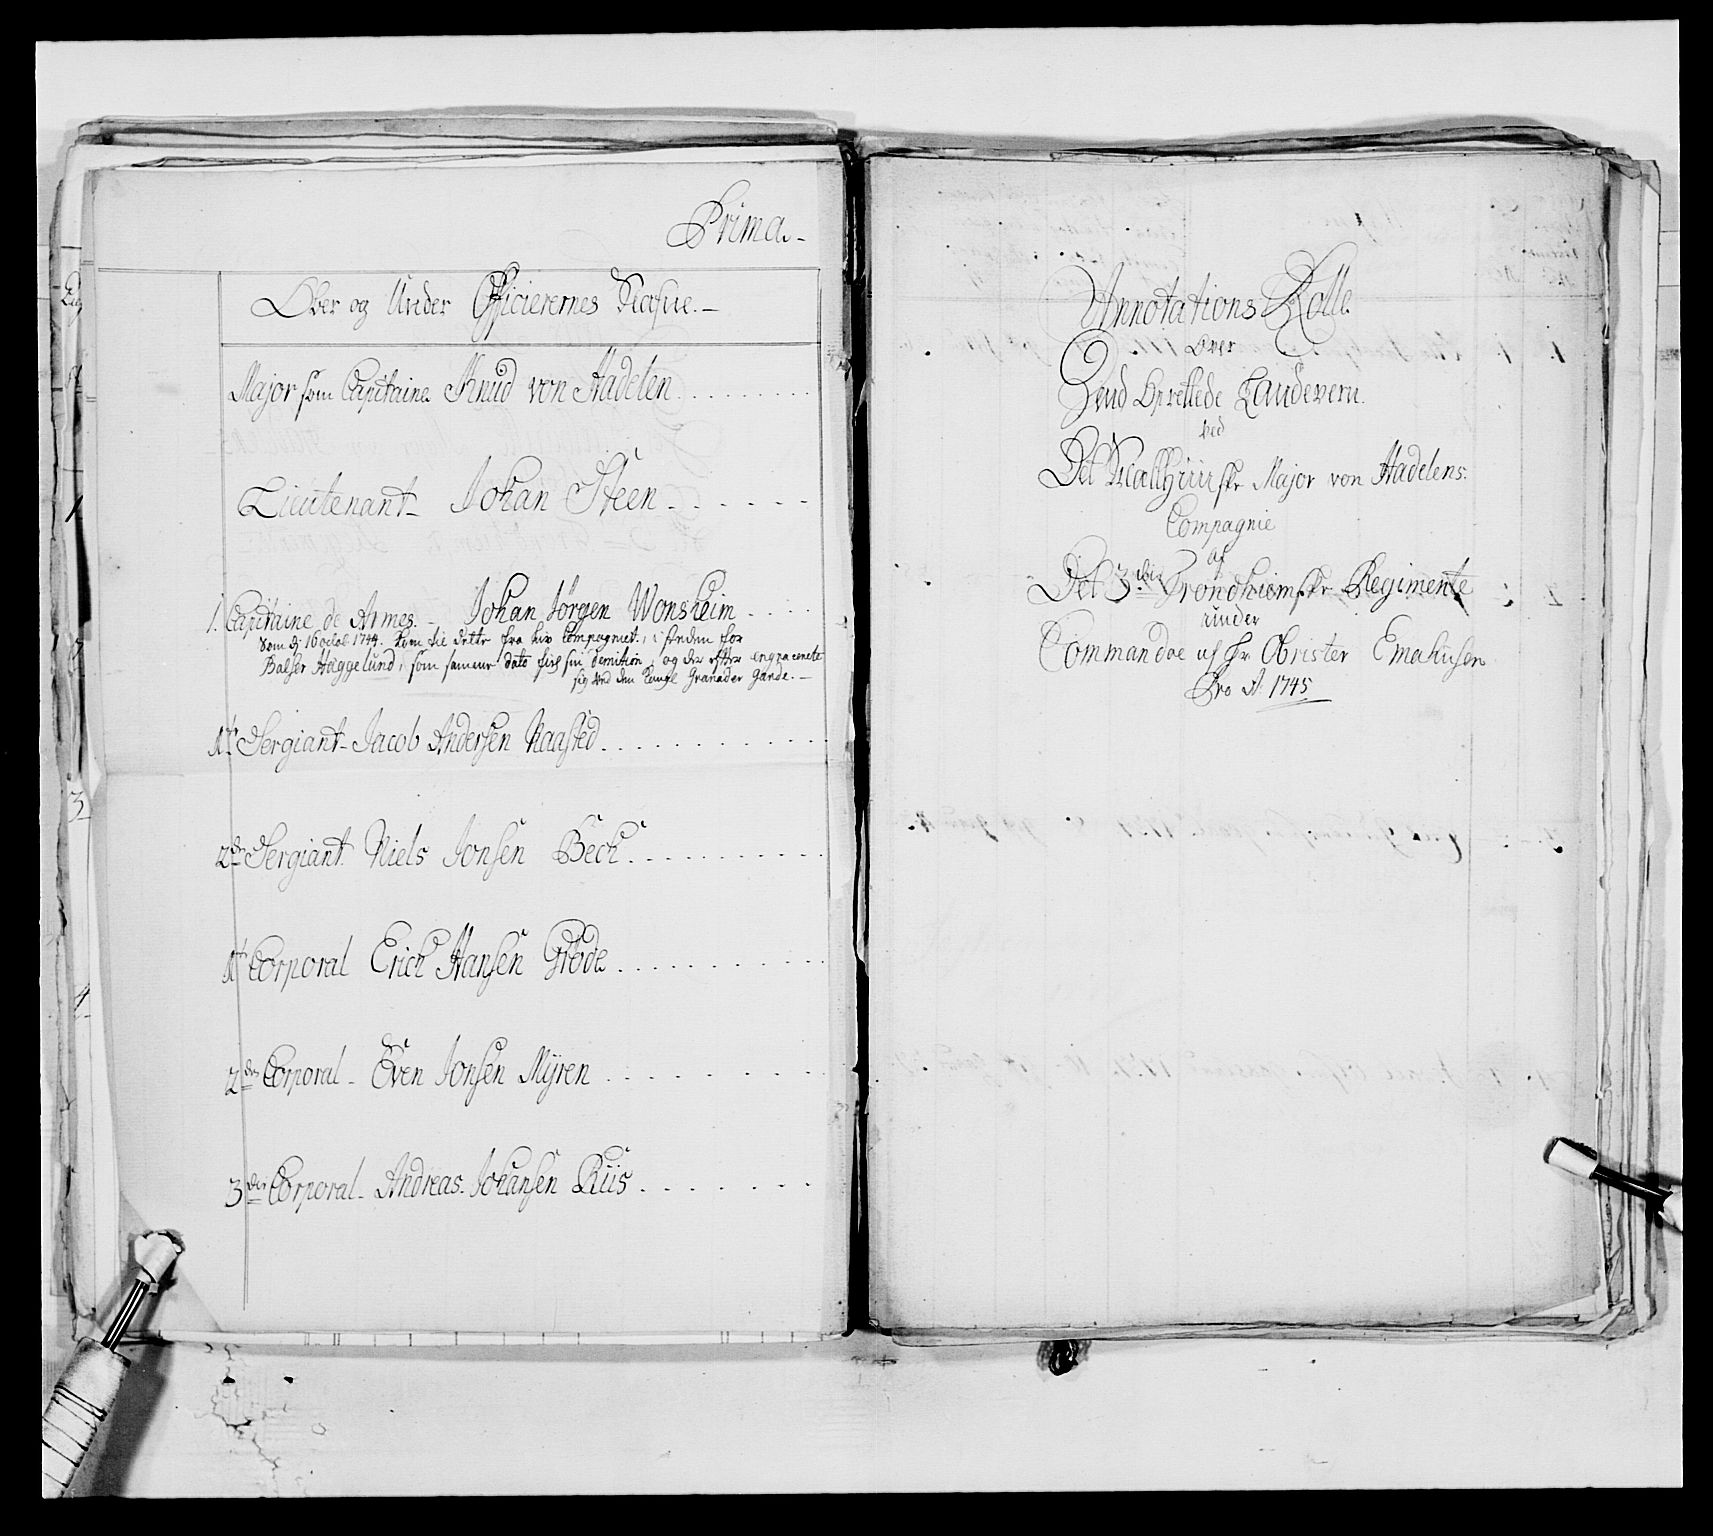 Prima.
Ober og Under Officierernes Nafne.
Major som Capitaine Knud von Hadelen
Lieutenant Johan Steen
1. Capitaine de Armes. Johan Jørgen Wonsheim
Som d: 16 octob: 1744. kom til dette fra liv Compagniet, i steden for
Balser Heggelund, som samme dato fik sin demition, og der efter
sig ved den Kongl Granader Garde.
1te Sergiant Jacob Andersen Naasted
2den Sergiant Niels Jonsen Beck
1te Corporal Erich Hansen Grøde
2den Corporal Even Jonsen Myren
3die Corporal Andreas Johansen Riis
3
4
Annotations Rolle
Over
Landevern
ved
Det Major von Hadelens
Compagnie
af
Det 3die Trondhiemske Regimente
under
Commandoe af Hr Obrister Emahusen
Pro A: 1745